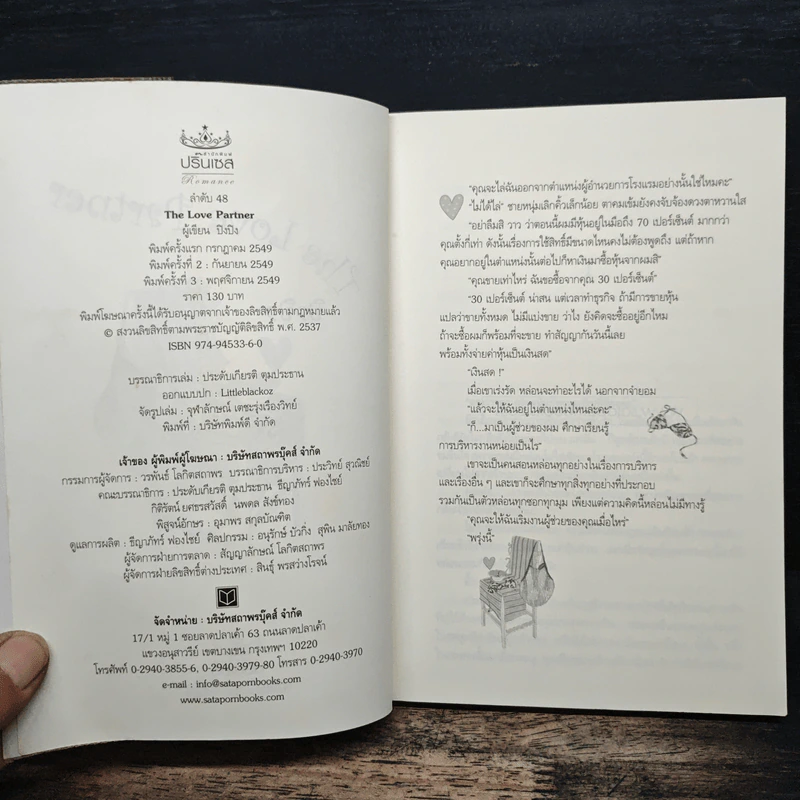 สำนักพิมพ์
ปริ๊นเซส
Romance
ลำดับ 48
The Love Partner
ผู้เขียน ปิงปิง
พิมพ์ครั้งแรก กรกฎาคม 2549
พิมพ์ครั้งที่ 2 : กันยายน 2549
พิมพ์ครั้งที่ 3 : พฤศจิกายน 2549
ราคา 130 บาท
พิมพ์โฆษณาครั้งนี้ได้รับอนุญาตจากเจ้าของลิขสิทธิ์ตามกฎหมายแล้ว
© สงวนลิขสิทธิ์ตามพระราชบัญญัติลิขสิทธิ์ พ.ศ. 2537
ISBN 974-94533-6-0
บรรณาธิการเล่ม : ประดับเกียรติ ตุมประธาน
ออกแบบปก : Littleblackoz
จัดรูปเล่ม : จุฬาลักษณ์ เตชะรุ่งเรืองวิทย์
พิมพ์ที่ : บริษัทพิมพ์ดี จำกัด
เจ้าของ ผู้พิมพ์ผู้โฆษณา : บริษัทสถาพรบุ๊คส์ จำกัด
กรรมการผู้จัดการ : วรพันธ์ โลกิตสถาพร บรรณาธิการบริหาร : ประวิทย์ สุวณิชย์
คณะบรรณาธิการ : ประดับเกียรติ ตุมประธาน ธีญาภัทร์ ฟองไซย์
กิติรัตน์ ยศธรสวัสดิ์ นพดล สังข์ทอง
พิสูจน์อักษร : อุมาพร สกุลบัณฑิต
ดูแลการผลิต : ธีญาภัทร์ ฟองไซย์ ศิลปกรรม : อนุรักษ์ บัวกิ่ง สุพิน มาลัยทอง
ผู้จัดการฝ่ายการตลาด : สัญญาลักษณ์ โลกิตสถาพร
ผู้จัดการฝ่ายลิขสิทธิ์ต่างประเทศ : สินธุ์ พรสว่างโรจน์
จัดจำหน่าย : บริษัทสถาพรบุ๊คส์ จำกัด
17/1 หมู่ 1 ซอยลาดปลาเค้า 63 ถนนลาดปลาเค้า
แขวงอนุสาวรีย์ เขตบางเขน กรุงเทพฯ 10220
โทรศัพท์ 0-2940-3855-6, 0-2940-3979-80 โทรสาร 0-2940-3970
e-mail : info@satapornbooks.com
www.satapornbooks.com
"คุณจะไล่ฉันออกจากตำแหน่งผู้อำนวยการโรงแรมอย่างนั้นใช่ไหมคะ"
"ไม่ได้ไล่" ชายหนุ่มเลิกคิ้วเล็กน้อย ตาคมเข้มยังคงจับจ้องดวงตาหวานใส
"อย่าลืมสิ วาว ว่าตอนนี้ผมมีหุ้นอยู่ในมือถึง 70 เปอร์เซ็นต์ มากกว่า
คุณตั้งกี่เท่า ดังนั้นเรื่องการใช้สิทธิ์มีขนาดไหนคงไม่ต้องพูดถึง แต่ถ้าหาก
คุณอยากอยู่ในตำแหน่งนั้นต่อไปก็หาเงินมาซื้อหุ้นจากผมสิ"
"คุณขายเท่าไหร่ ฉันขอซื้อจากคุณ 30 เปอร์เซ็นต์"
"30 เปอร์เซ็นต์ น่าสน แต่เวลาทำธุรกิจ ถ้ามีการขายหุ้น
แปลว่าขายทั้งหมด ไม่มีแบ่งขาย ว่าไง ยังคิดจะซื้ออยู่อีกไหม
ถ้าจะซื้อผมก็พร้อมที่จะขาย ทำสัญญากันวันนี้เลย
พร้อมทั้งจ่ายค่าหุ้นเป็นเงินสด"
"เงินสด !"
เมื่อเขาเร่งรัด หล่อนจะทำอะไรได้ นอกจากจำยอม
"แล้วจะให้ฉันอยู่ในตำแหน่งไหนล่ะคะ"
"ก็...มาเป็นผู้ช่วยของผม ศึกษาเรียนรู้
การบริหารงานหน่อยเป็นไร"
เขาจะเป็นคนสอนหล่อนทุกอย่างในเรื่องการบริหาร
และเรื่องอื่น ๆ และเขาก็จะศึกษาทุกสิ่งทุกอย่างที่ประกอบ
รวมกันเป็นตัวหล่อนทุกซอกทุกมุม เพียงแต่ความคิดนี้หล่อนไม่มีทางรู้
"คุณจะให้ฉันเริ่มงานผู้ช่วยของคุณเมื่อไหร่"
"พรุ่งนี้"